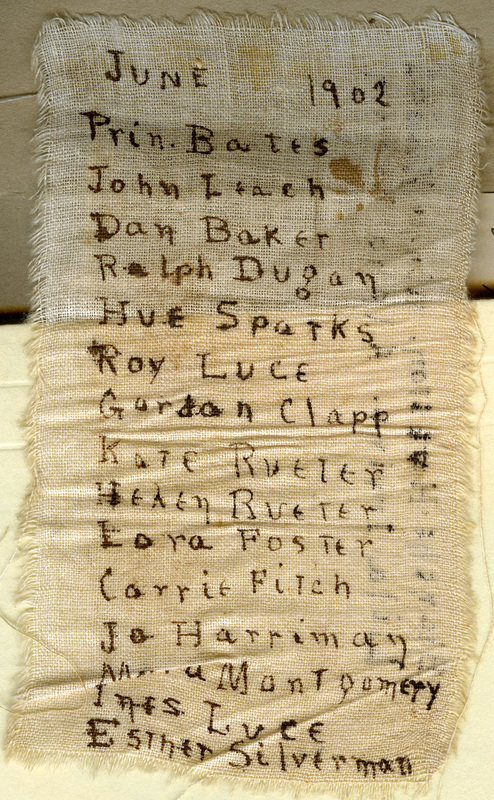 JUNE 1902
Prin. Bates
John Leach
Dan Baker
Ralph Dugan
Hue Sparks
Roy Luce
Gordon Clapp
Kate Rueter
Helen Rueter
Lora Foster
Carrie Fitch
Jo Harriman
Montgomery
Ines Luce
Esther Silverman